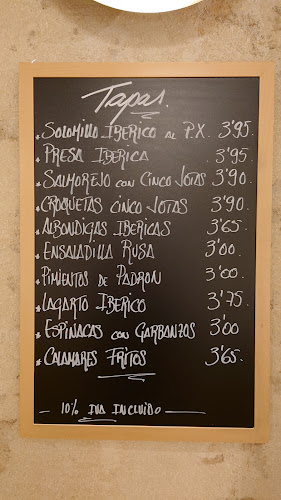 Tapas.
* SOLOMILLO IBERICO AL P.X. 3'95.
* PRESA IBERICA . 3'95.
* SALMOREJO CON CINCO JOTAS 3'90.
* CROQUETAS CINCO JOTAS 3'90.
* ALBONDIGAS IBERICAS 3'65.
* ENSALADILLA RUSA 3'00.
* PIMIENTOS DE PADRON 3'00.
* LAGARTO IBERICO 3'75.
* ESPINACAS CON GARBANZOS 3'00
* CALAMARES FRITOS 3'65.
- 10% IVA INCLUIDO -